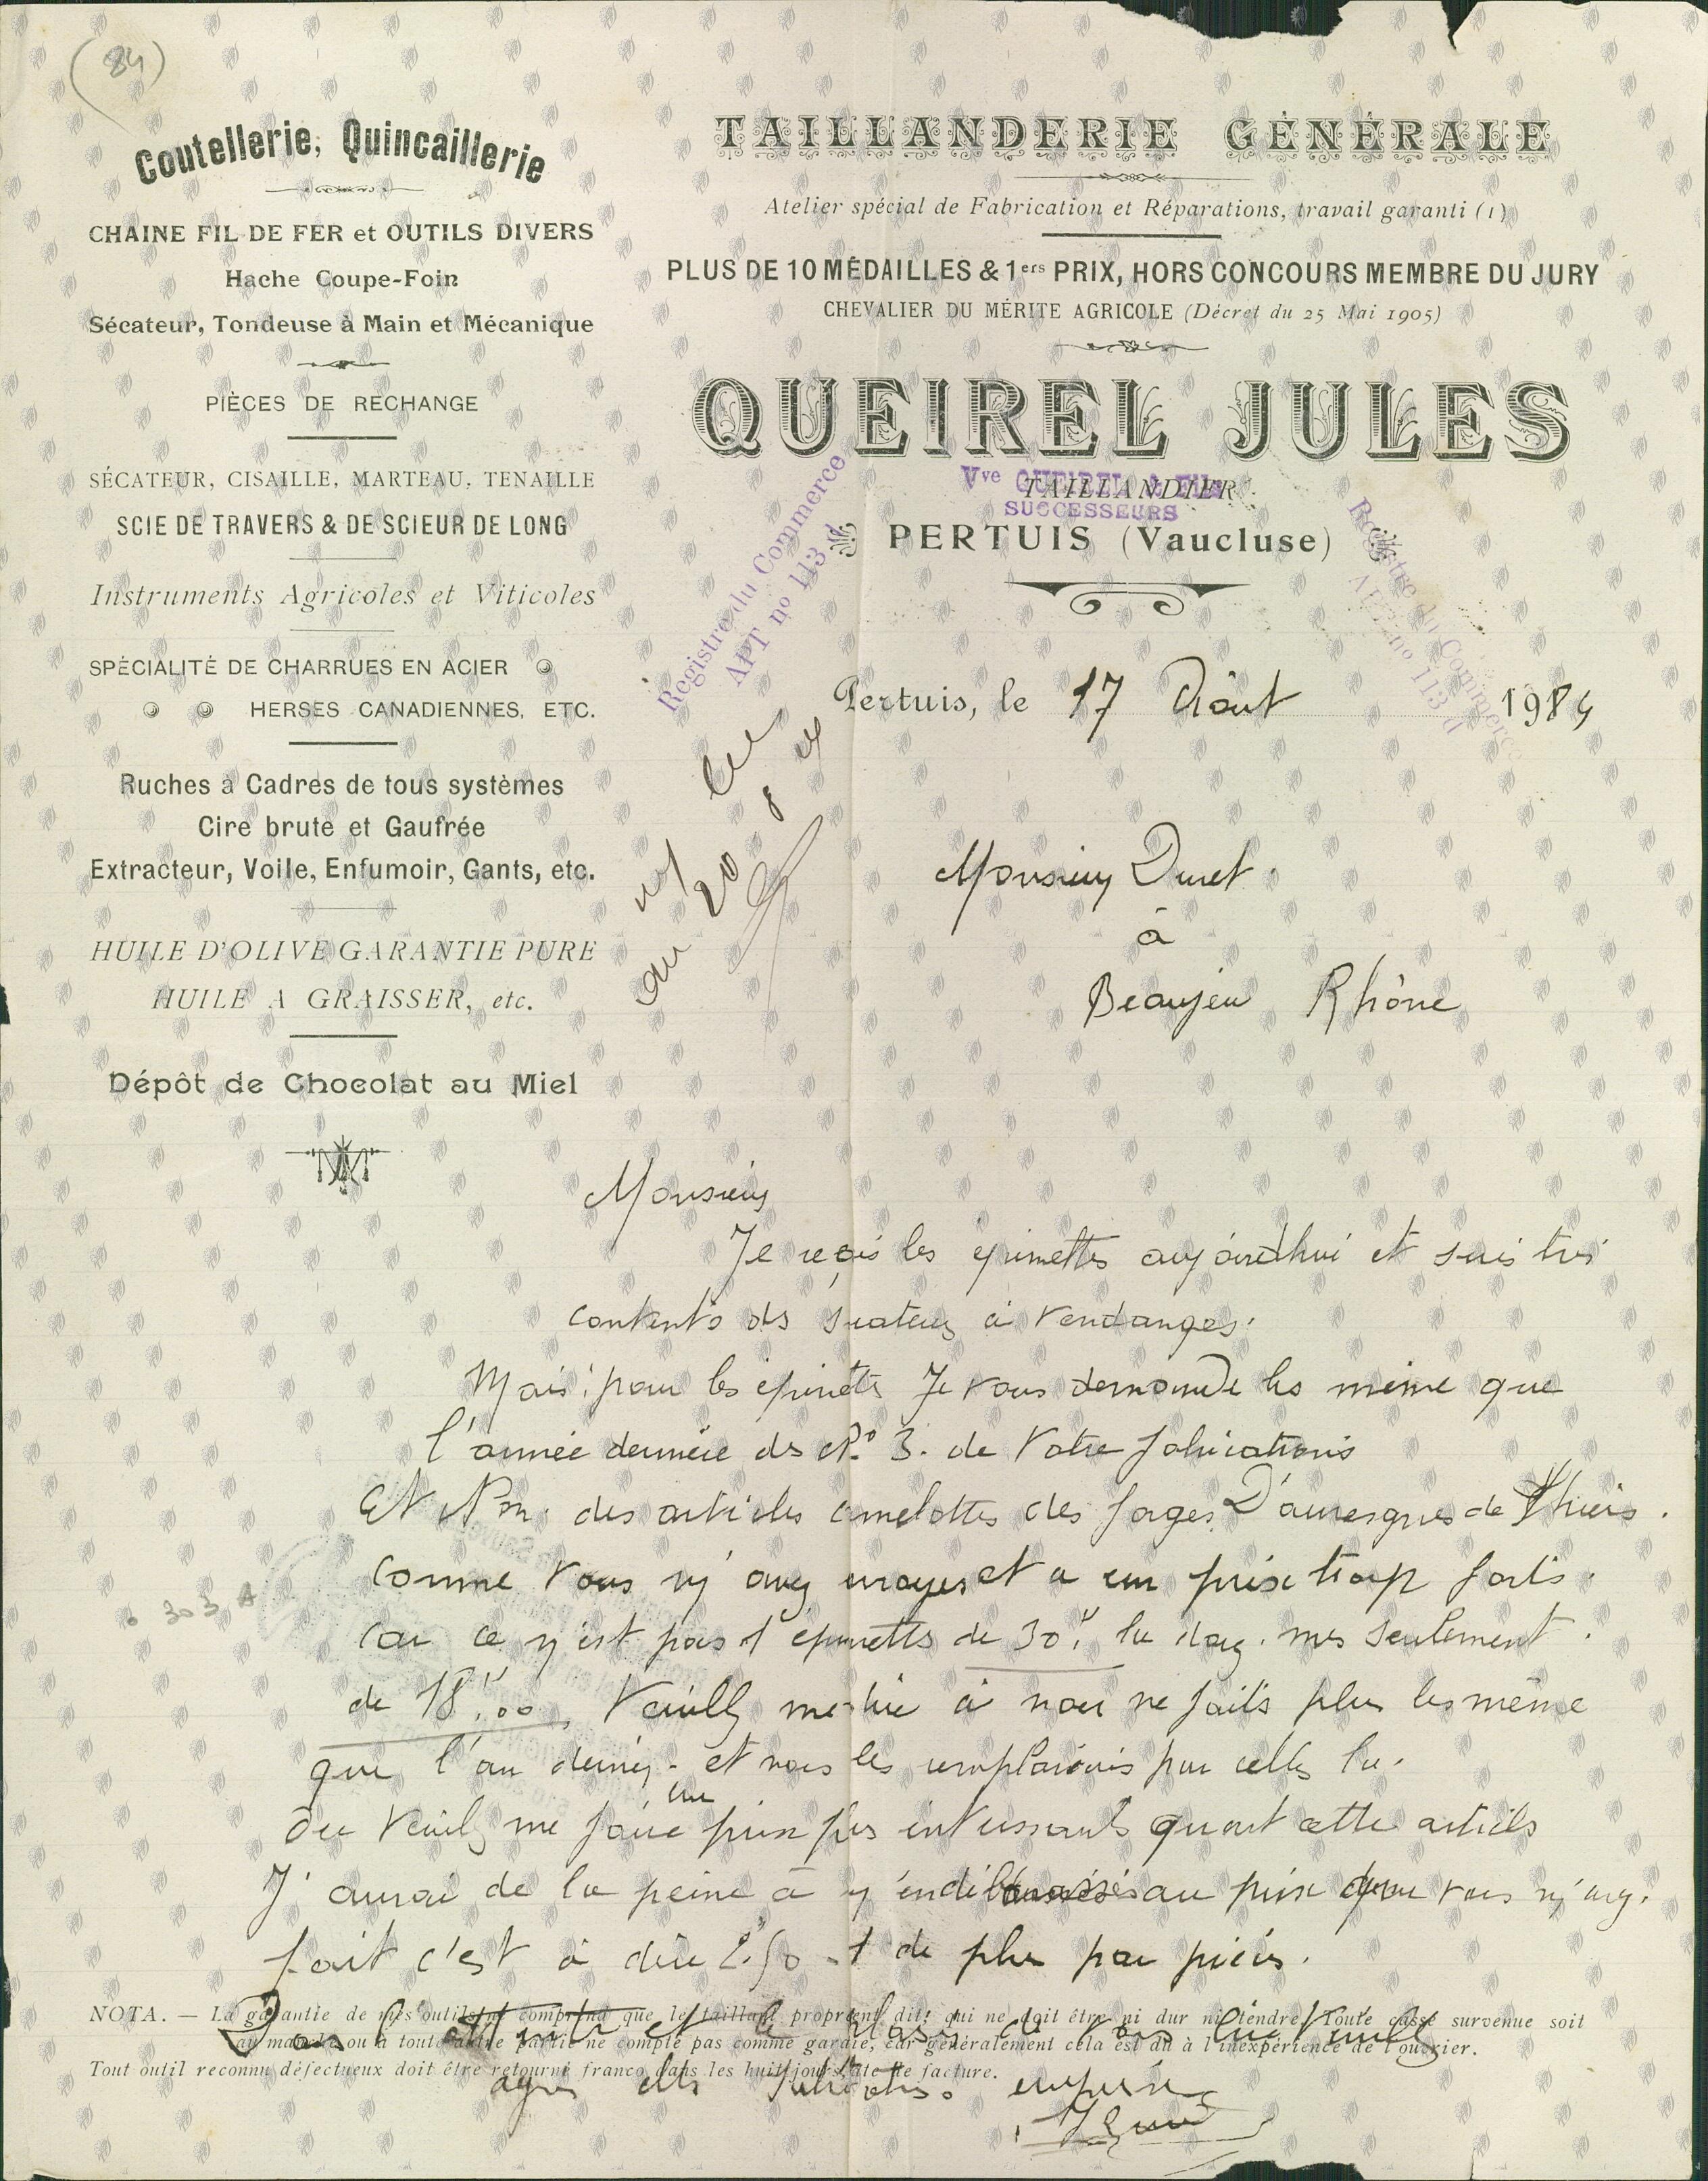 (84)
Coutellerie, Quincaillerie
CHAINE FIL DE FER et OUTILS DIVERS
Hache Coupe-Foin
Sécateur, Tondeuse à Main et Mécanique
PIÈCES DE RECHANGE
SÉCATEUR, CISAILLE, MARTEAU, TENAILLE
SCIE DE TRAVERS & DE SCIEUR DE LONG
Instruments Agricoles et Viticoles
SPÉCIALITÉ DE CHARRUES EN ACIER
HERSES CANADIENNES, ETC.
Ruches à Cadres de tous systèmes
Cire brute et Gaufrée
Extracteur, Voile, Enfumoir, Gants, etc.
HUILE D'OLIVE GARANTIE PURE
HUILE A GRAISSER, etc.
Dépôt de Chocolat au Miel
TAILLANDERIE GÉNÉRALE
Atelier spécial de Fabrication et Réparations, travail garanti (1)
PLUS DE 10 MÉDAILLES & 1ers PRIX, HORS CONCOURS MEMBRE DU JURY
CHEVALIER DU MÉRITE AGRICOLE (Décret du 25 Mai 1905)
QUEIREL JULES
Vve QUEIREL & Fils
TAILLANDIER
SUCCESSEURS
PERTUIS (Vaucluse)
Registre du Commerce
APT no 113 d
Registre du Commerce
APT no 113 d
Pertuis, le 17 Août 1984
20 8
Monsieur Duret
à
Beaujeu Rhône
Monsieur
Je reçois les epinettes aujourd'hui et suis très
contents ds à Vendanges.
Mais pour les epinette Je vous demande les même que
l'année dernière ds No 3. de Votre fabrications
Et Non des articles camelottes des forges D'auvergnes de Thiers.
Comme Vous m'avez envoyer et a un prix trop forts.
Car ce n'est pas d'epinetts de 30" la doz. mes seulement.
de 18",00, Veuillz me dire à nou ne faits plus les même
que l'an dernier et nous les remplacions par celles la.
Ou Veuilz me faire un prix plus quant cette articls
J'aurai de la peine à au prix que vous m'avez.
fait c'est à dire 2.50 de plus par pièces.
NOTA. — La garantie de mes outils ne comprend que le taillant proprement dit, qui ne doit être ni dur ni tendre. Toute casse survenue soit
au manche ou à toute autre partie ne compte pas comme garanti, car généralement cela est dû à l'inexpérience de l'ouvrier.
Tout outil reconnu défectueux doit être retourné franco dans les huit jours date de facture.